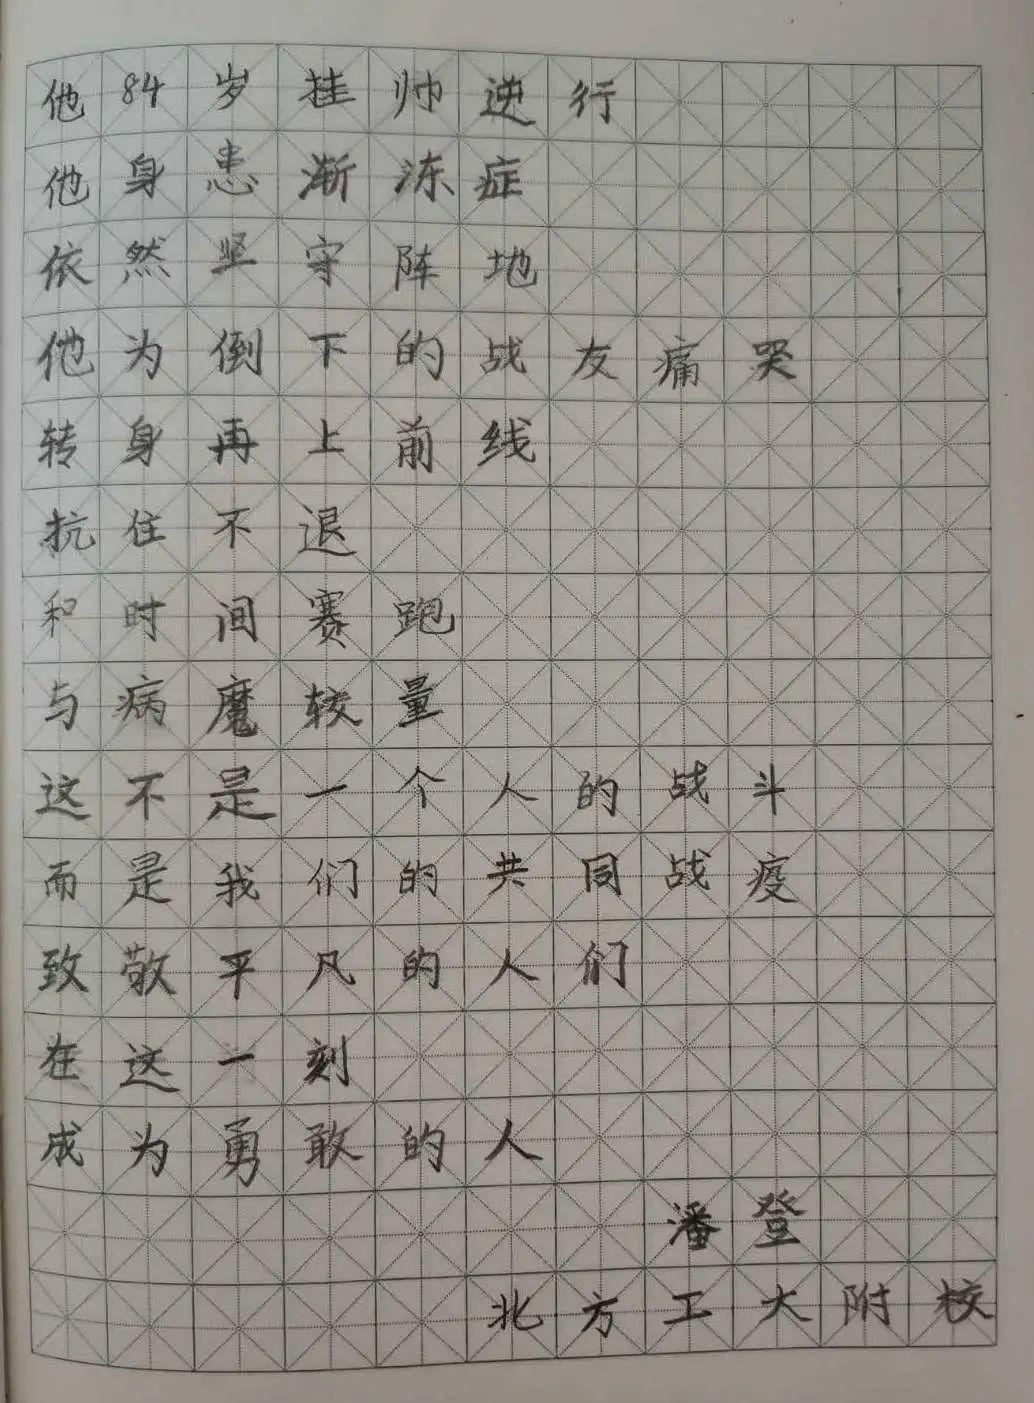 他84岁挂帅逆行
他身患渐冻症
依然坚守阵地
他为倒下的战友痛哭
转身再上前线
抗住不退
和时间赛跑
与病魔较量
这不是一个人的战斗
而是我们的共同战疫
致敬平凡的人们
在这一刻
成为勇敢的人
潘登
北方工大附校